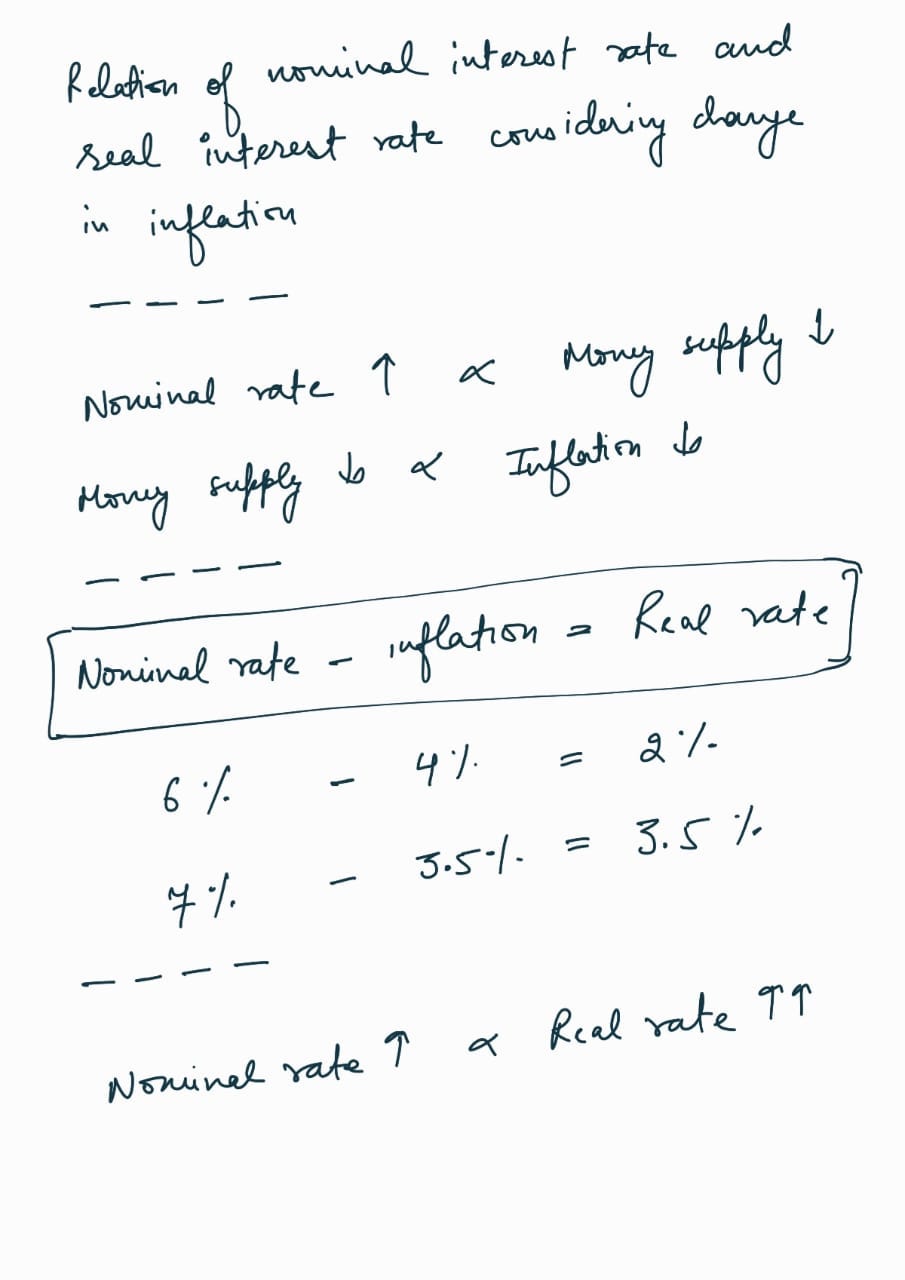 Relation of nominal interest rate and
real interest rate considering change
in inflation
– – – –
Nominal rate ↑ ∝ Money supply ↓
Money supply ↓ ∝ Inflation ↓
– – – –
Nominal rate – inflation = Real rate
6% – 4% = 2%
7% – 3.5% = 3.5%
– – – –
Nominal rate ↑ ∝ Real rate ↑↑